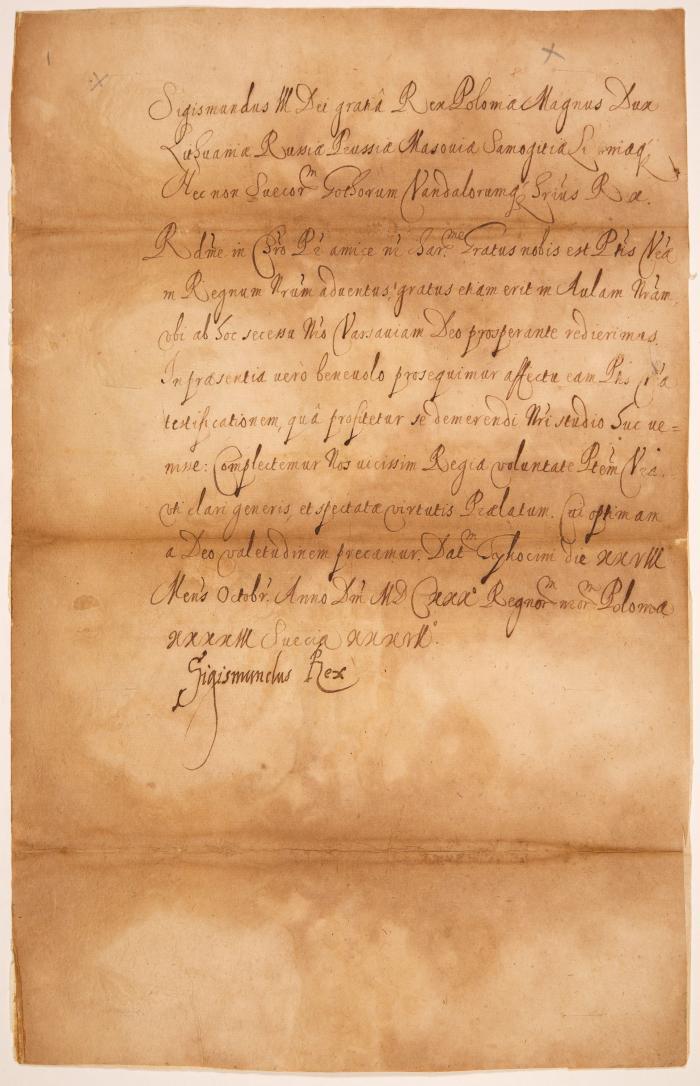 Sigismundus III Dei gratiâ Rex Poloniæ Magnus Dux
Lithuaniæ Russiæ Prussiæ Masouiæ Samogitiæ
Nec non Suecor͞m Gothorum Vandalorumq́ hr̃ius Rex.
Rdm̃e in Chr̃o Pr̃ amice nr̃ char.me Gratus nobis est Ptis Vr̃æ
in Regnum Nr̃um aduentus, gratus etiam erit in Aulam Nr̃am,
vbi ab hoc secessu Nr̃o Varsauiam Deo prosperante redierimus.
In præsentia verò beneuolo prosequimur affectu eam Ptis
testificationem, quâ profitetur se demerendi Nr̃i studio huc ue=
nisse: Complectemur Nos uicissim Regia voluntate Ptem Vr̃a.
vti clari generis, et spectatæ virtutis Prælatum. Cui optimam
a Deo valetudinem precamur. Dat͞m Tykocini die XXVIII
Mens̃ Octobr. Anno Dn̄i MD CXXX° Regnor͞m nr̃or͞m Poloniæ
XXXXIII Sueciæ XXXVII°.
Sigismundus Rex